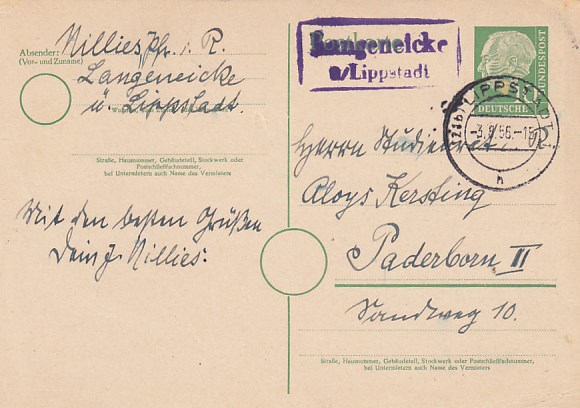 Absender:
(Vor- und Zuname)
Nillies, Pfr. i. R.
Langeneicke
ü. Lippstadt.
Straße, Hausnummer, Gebäudeteil, Stockwerk oder
Postschließfachnummer,
bei Untermietern auch Name des Vermieters
Mit den besten Grüßen
Dein J. Nillies.
Langeneicke
ü/Lippstadt
DEUTSCHE
BUNDESPOST
LIPPSTADT
h
Herrn Studienrat
Aloys Kersting
Paderborn II
Sandweg 10.
Straße, Hausnummer, Gebäudeteil, Stockwerk oder Postschließfachnummer,
bei Untermietern auch Name des Vermieters